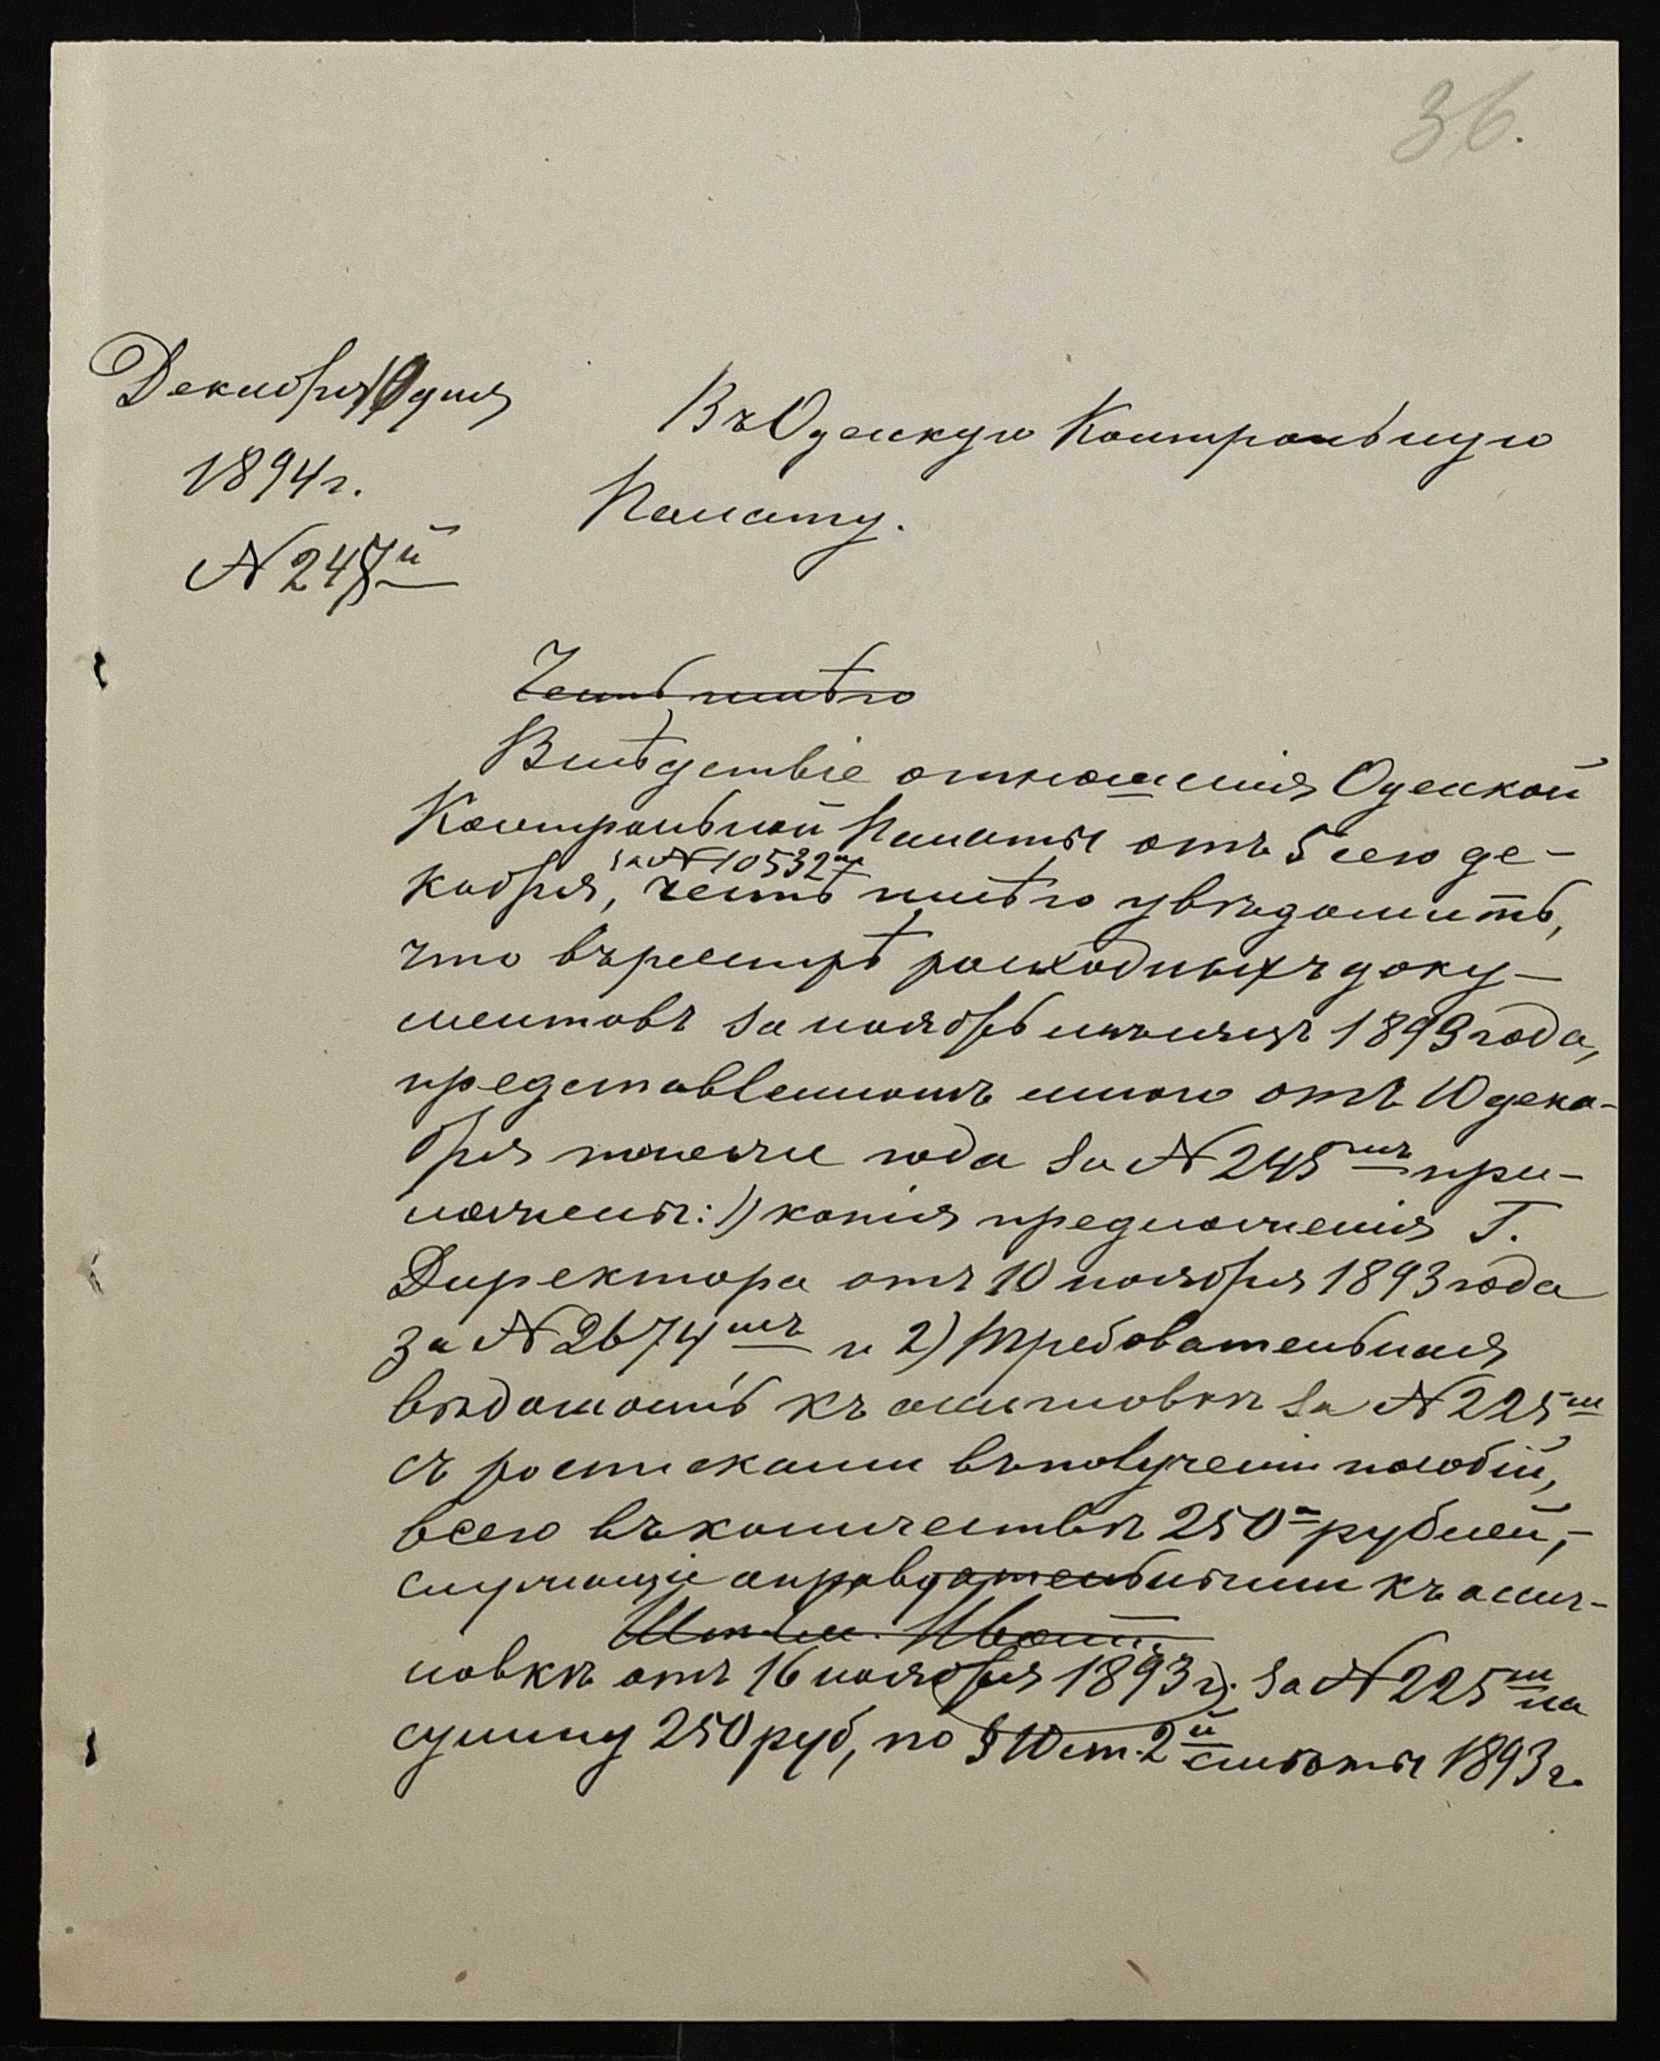 36.
Декабря 10 дня
1894 г.
№ 247й
Въ Одесскую Контрольную
Палату.
Честь имѣю
Вслѣдствіе отношенія Одесской
Контрольной Палаты отъ 5 сего де-
за № 10532
кабря, честь имѣю увѣдомить,
что въ реестрѣ расходныхъ доку-
ментовъ за ноябрь мѣсяцъ 1893 года,
представленномъ мною отъ 10 дека-
бря того же года за № 245мъ при-
ложены: 1) копія предложенія Г.
Директора отъ 10 ноября 1893 года
за № 2674мъ и 2) требовательная
вѣдомость къ ассигновкѣ за № 225м
съ росписками въ полученіи пособій,
всего въ количествѣ 250 рублей,-
служащіе оправдательными къ ассиг-
новкѣ отъ 16 ноября 1893 г. за № 225м на
сумму 250 руб, по § 10 ст. 2й смѣты 1893 г.